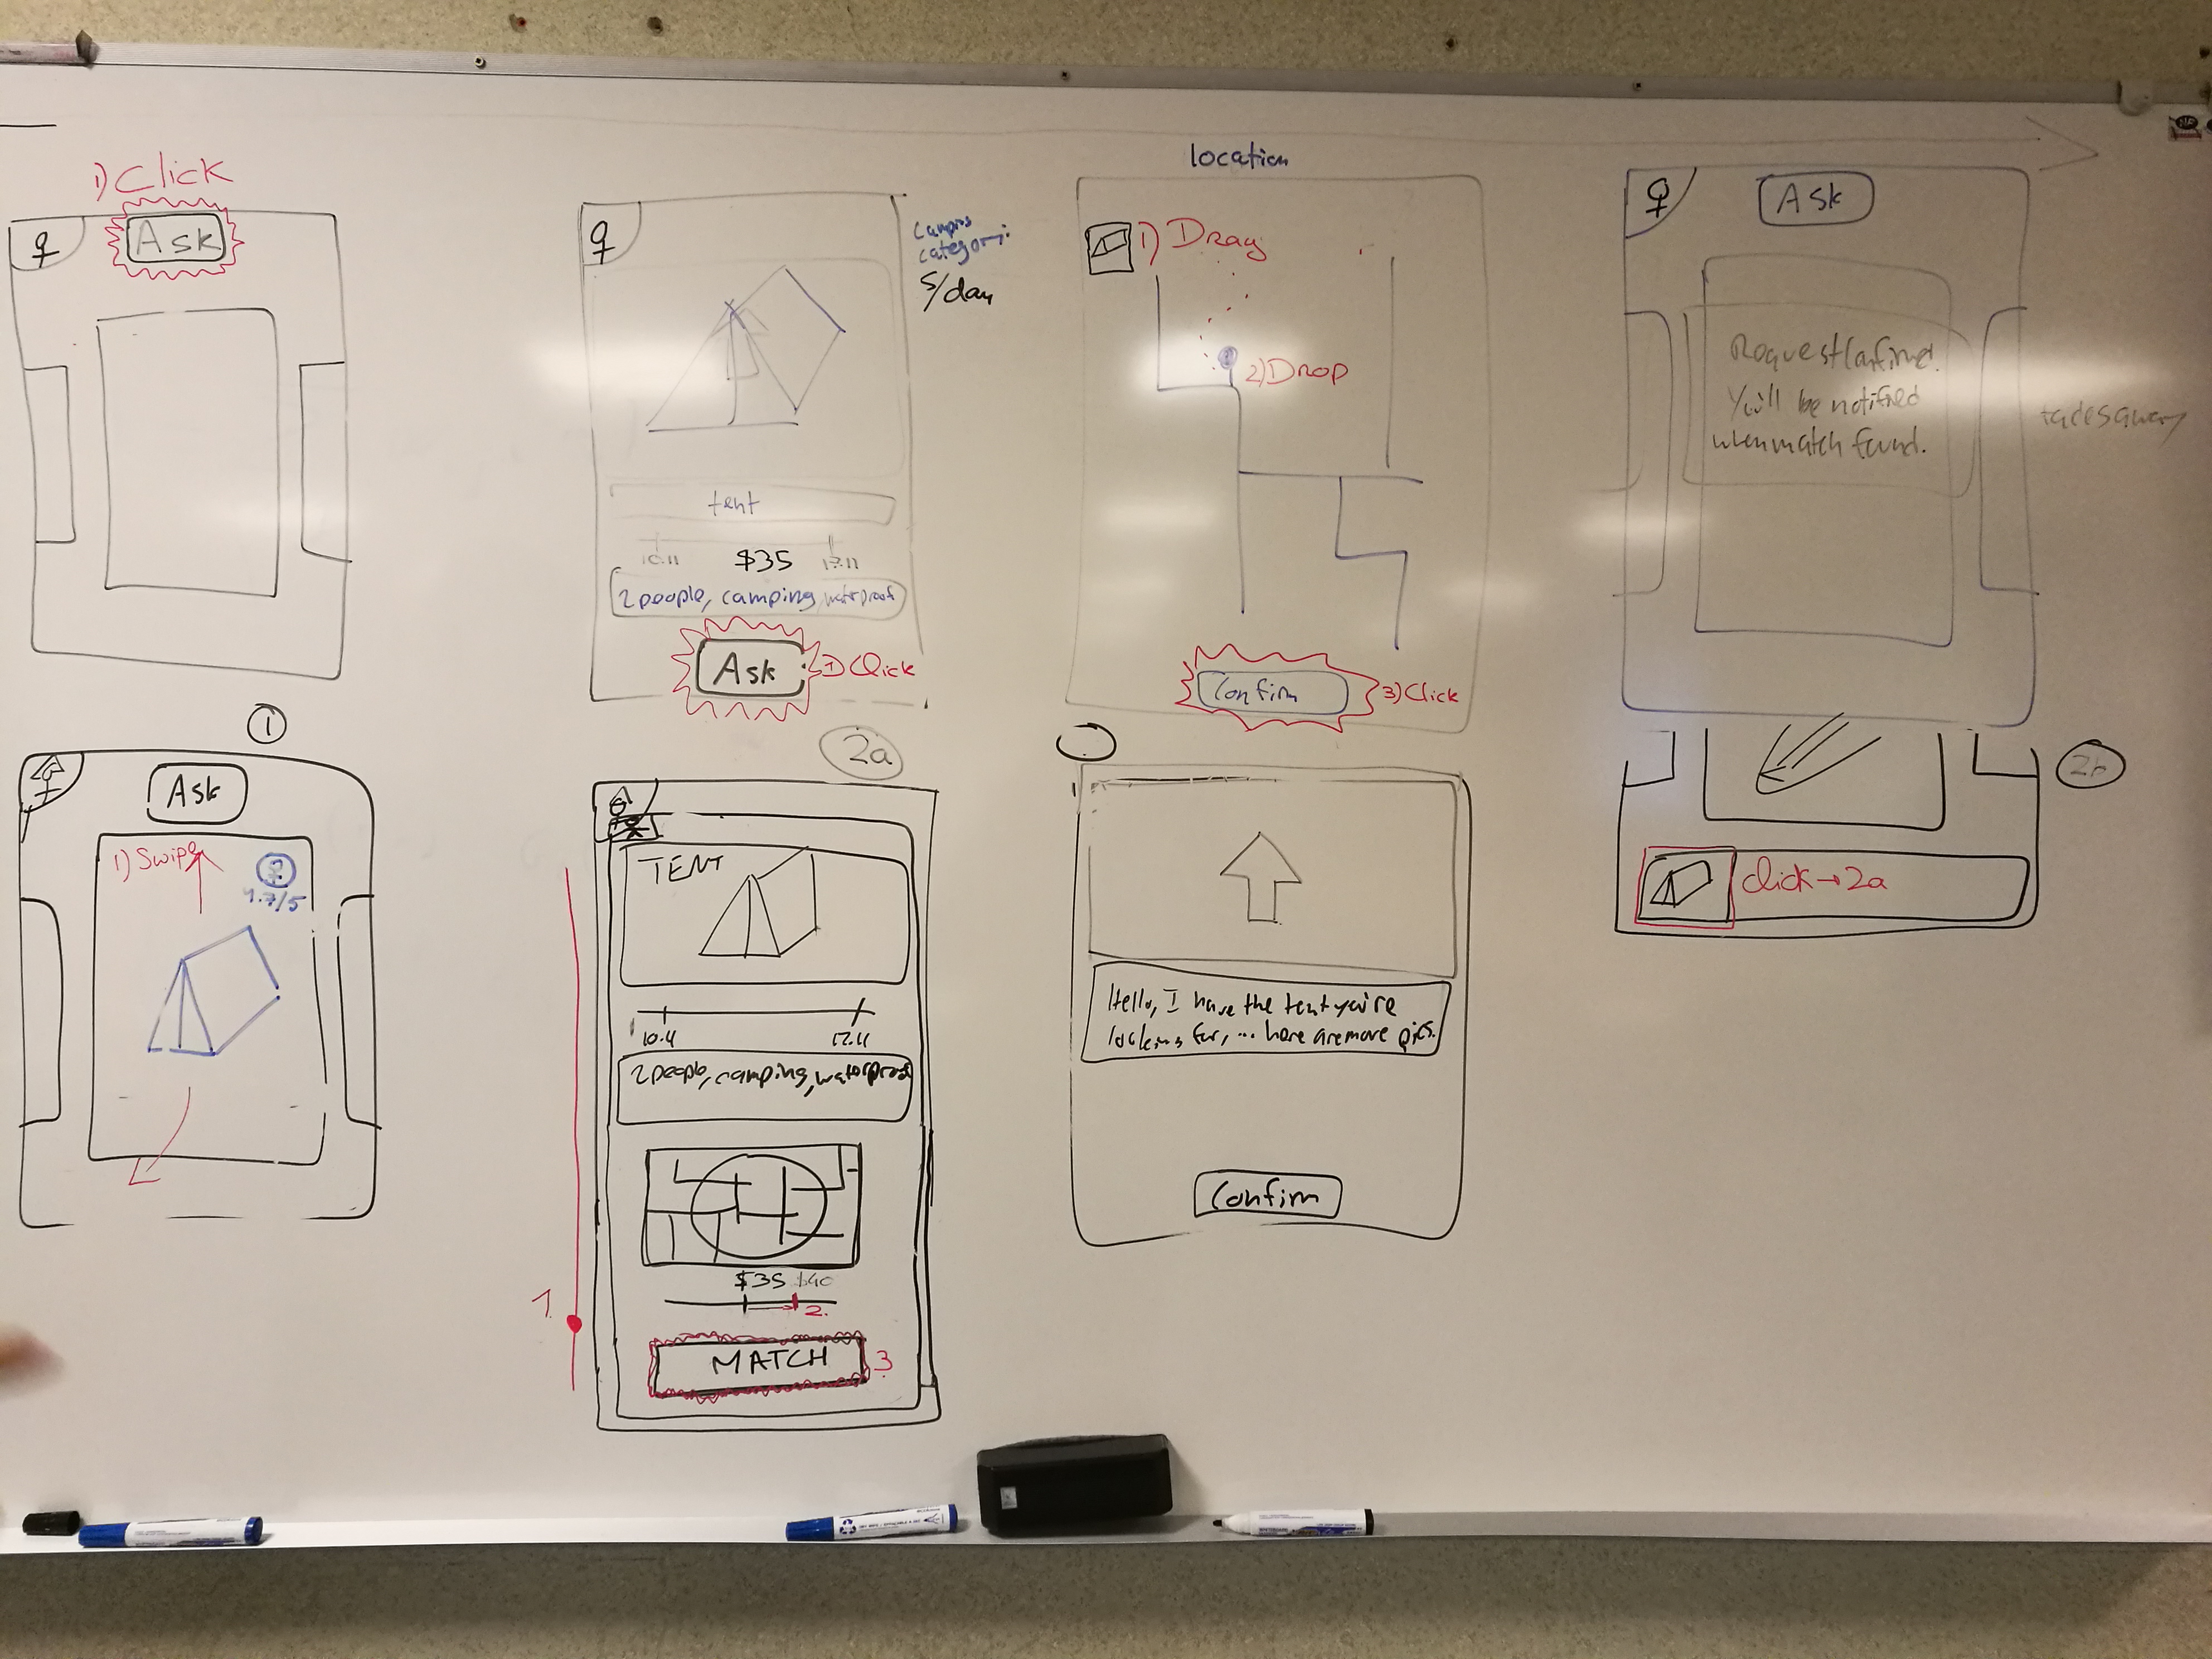 1) Click
Ask
tent
10.11
$35
17.11
2 people, camping, waterproof
Ask
1) Click
Campins
categori
$/day
location
1) Drag
2) Drop
Confirm
3) Click
Ask
Request Confirmed.
You'll be notified
when match found.
fades away
1
Ask
1) Swipe
4.7/5
2a
TENT
10.11
17.11
2 people, camping, waterproof
$35 $40
1.
2.
MATCH
3
Hello, I have the tent you're
looking for, ... here are more pics.
Confirm
2b
Click → 2a